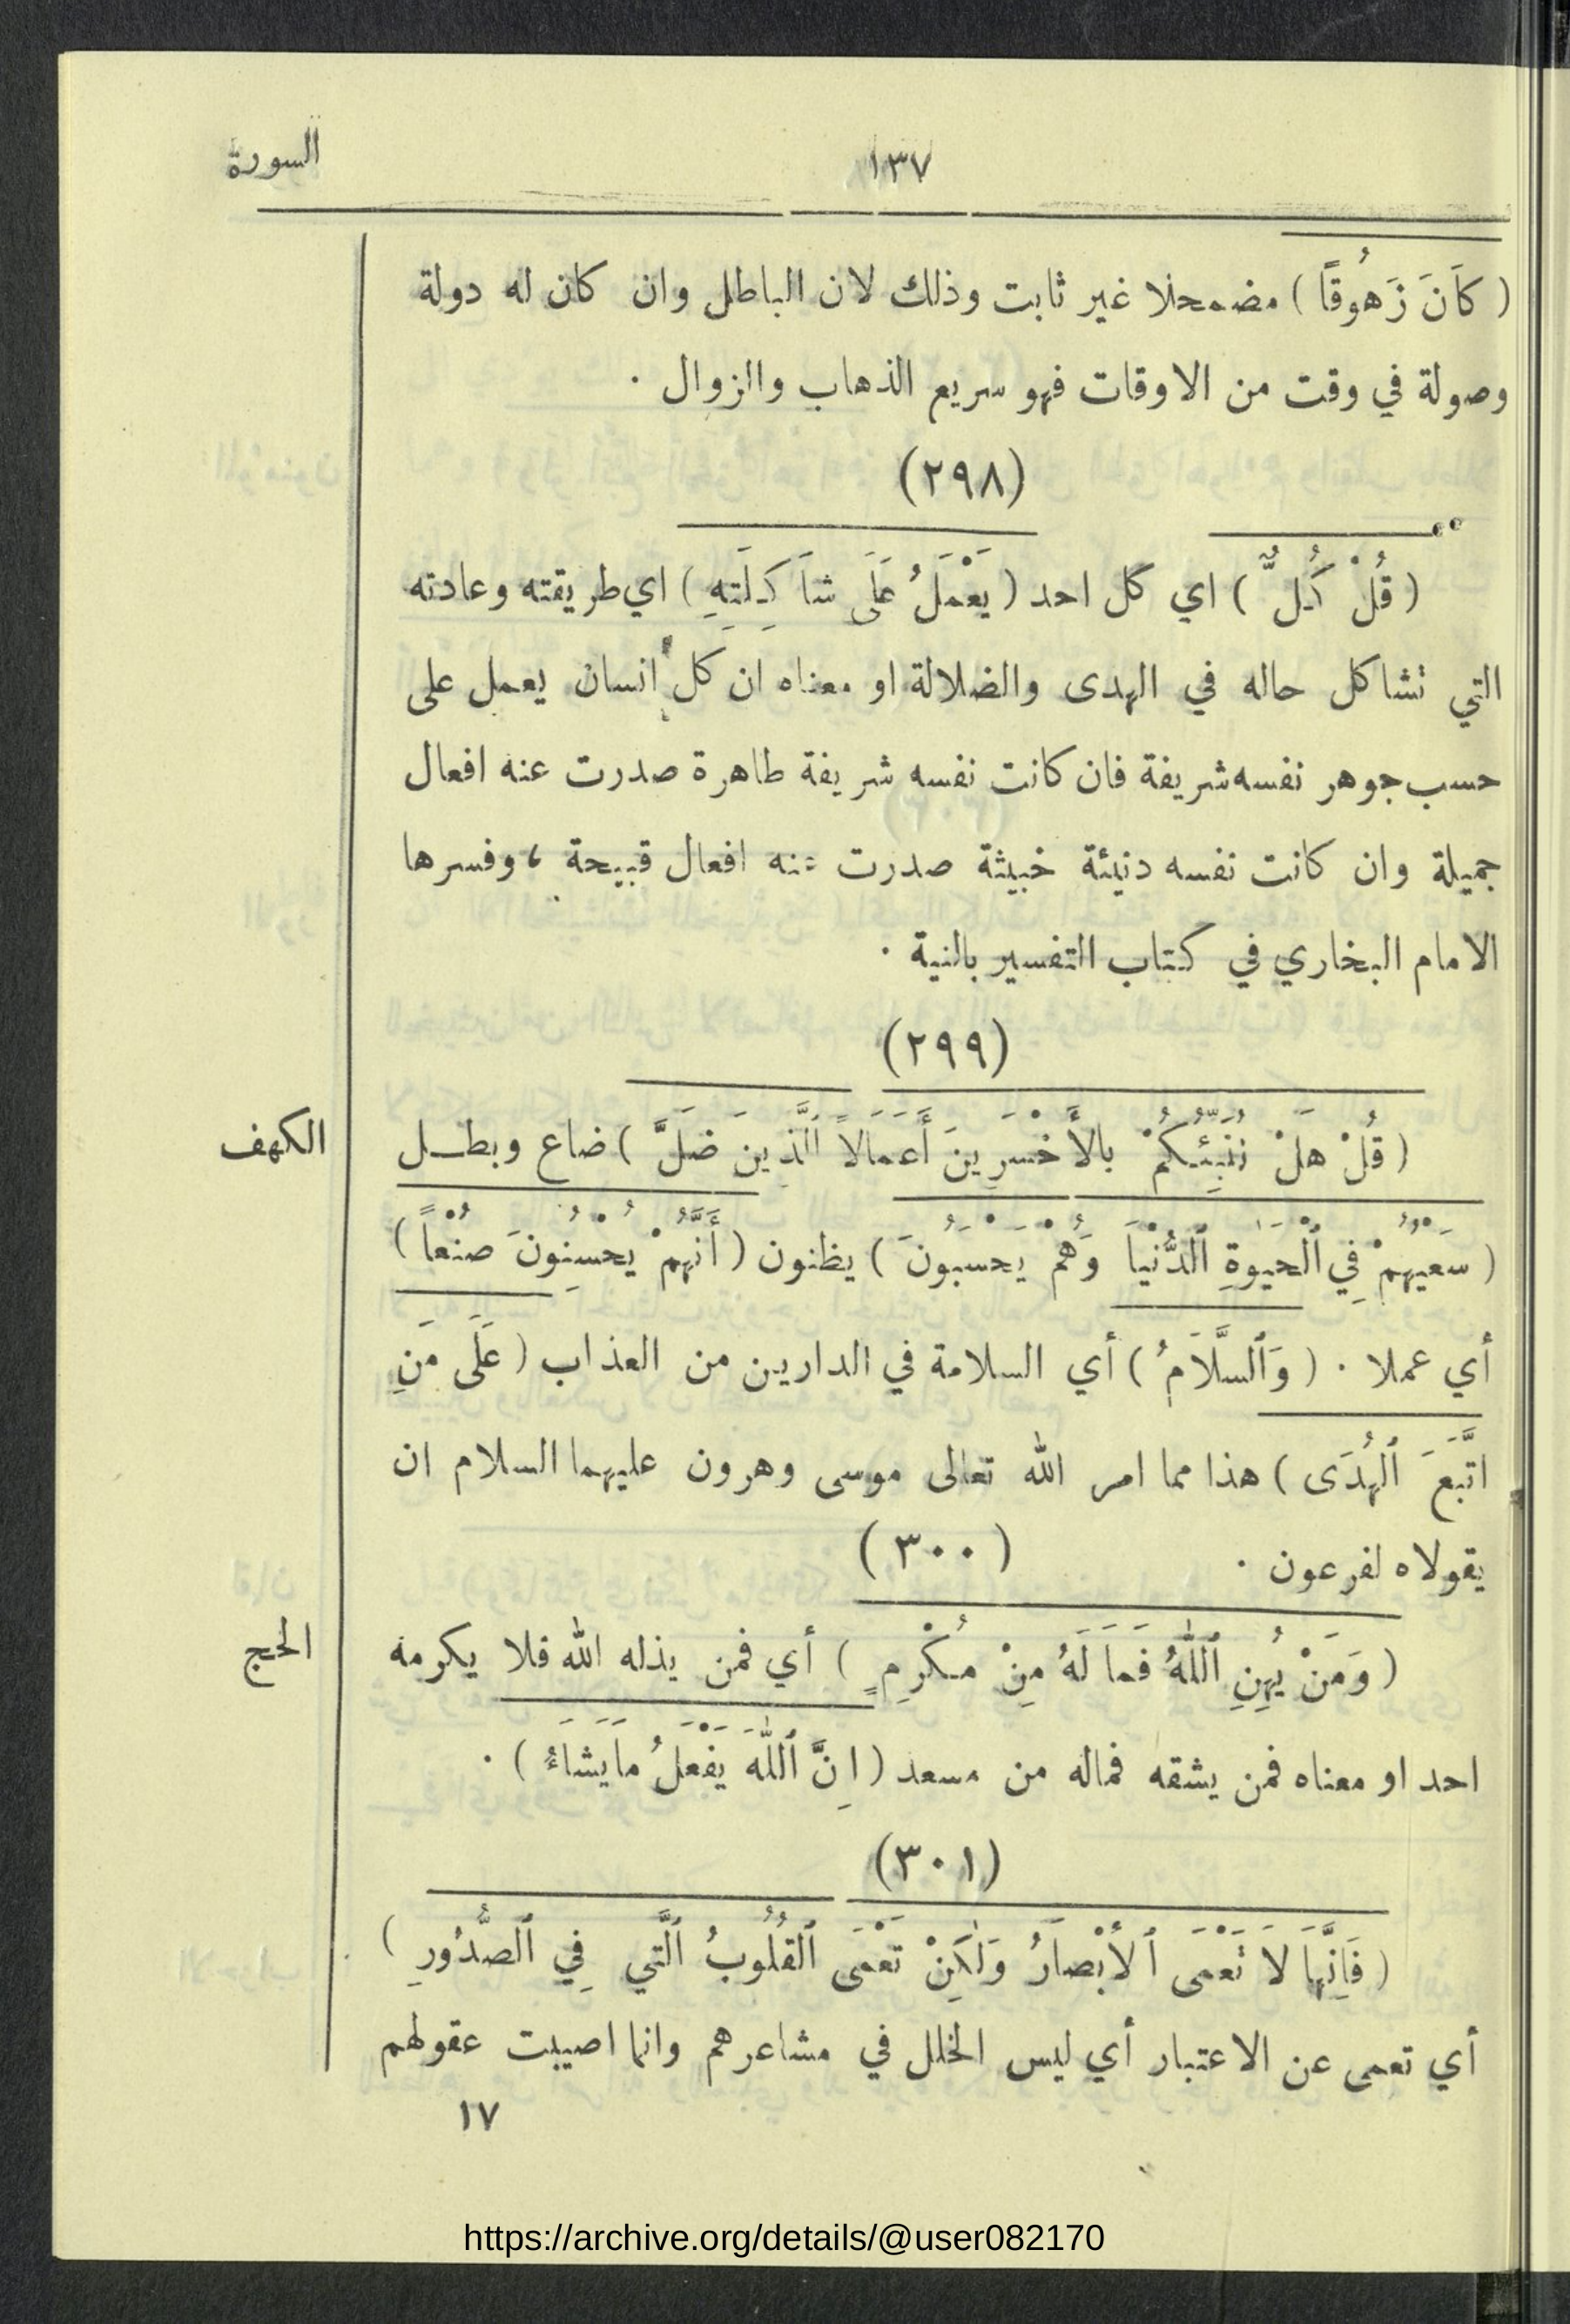 ١٣٧
السورة
( كَانَ زَهُوقًا ) مضمحلا غير ثابت وذلك لان الباطل وان كان له دولة
وصولة في وقت من الاوقات فهو سريع الذهاب والزوال .
(٢٩٨)
( قُلْ كُلٌّ ) اي كل احد ( يَعْمَلُ عَلَى شَاكِلَتِهِ ) اي طريقته وعادته
التي تشاكل حاله في الهدى والضلالة او معناه ان كل انسان يعمل على
حسب جوهر نفسه شريفة فان كانت نفسه شريفة طاهرة صدرت عنه افعال
جميلة وان كانت نفسه دنيئة خبيثة صدرت عنه افعال قبيحة ، وفسرها
الامام البخاري في كتاب التفسير بالنية .
(٢٩٩)
( قُلْ هَلْ نُنَبِّئُكُمْ بِالأَخْسَرِينَ أَعْمَالاً ٱلَّذِينَ ضَلَّ ) ضاع وبطل
الكهف
( سَعْيُهُمْ فِي ٱلْحَيٰوةِ ٱلدُّنْيَا وَهُمْ يَحْسَبُونَ ) يظنون ( أَنَّهُمْ يُحْسِنُونَ صُنْعاً )
أي عملا . ( وَٱلسَّلَامُ ) أي السلامة في الدارين من العذاب ( عَلَى مَنِ
اتَّبَعَ ٱلْهُدَى ) هذا مما امر الله تعالى موسى وهرون عليهما السلام ان
يقولاه لفرعون .
(٣٠٠)
( وَمَنْ يُهِنِ ٱللّٰهُ فَمَا لَهُ مِنْ مُكْرِمٍ ) أي فمن يذله الله فلا يكرمه
الحج
احد او معناه فمن يشقه فماله من مسعد ( اِنَّ ٱللّٰهَ يَفْعَلُ مَا يَشَاءُ ) .
(٣٠١)
( فَاِنَّهَا لاَ تَعْمَى ٱلأَبْصَارُ وَلٰكِنْ تَعْمَى ٱلْقُلُوبُ ٱلَّتِي فِي ٱلصُّدُورِ )
أي تعمى عن الاعتبار أي ليس الخلل في مشاعرهم وانما اصيبت عقولهم
١٧
https://archive.org/details/@user082170